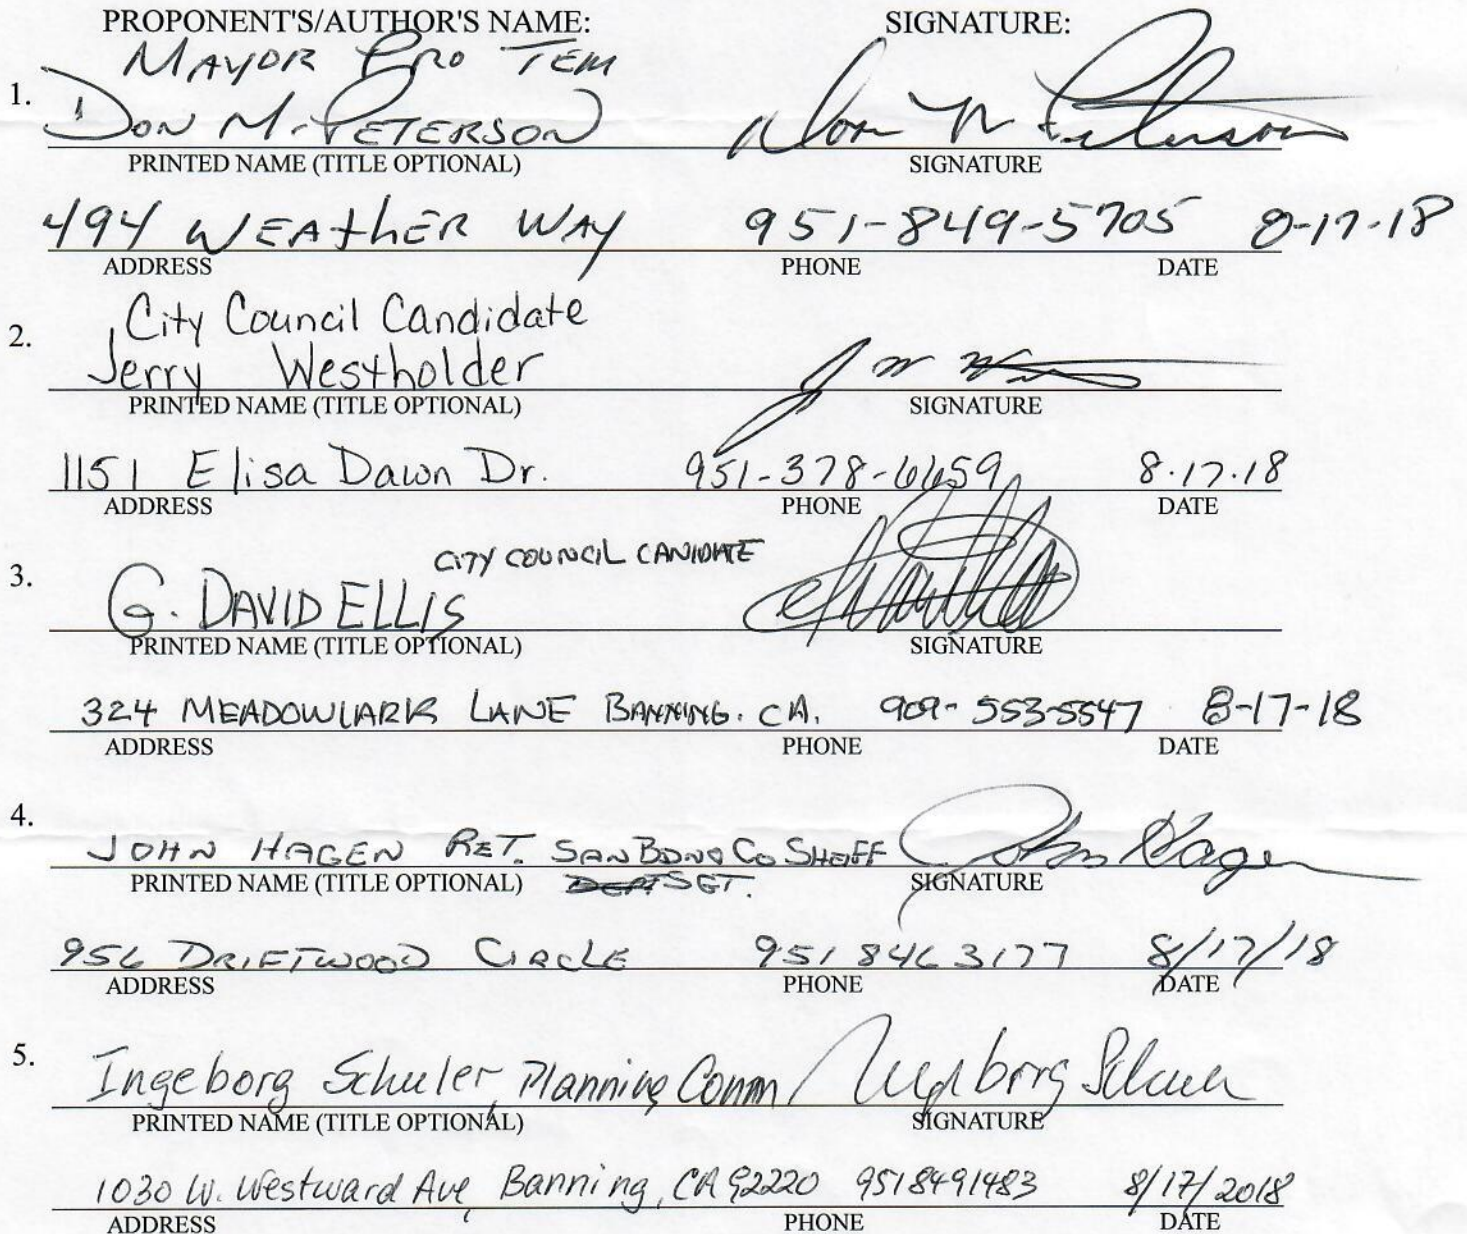 PROPONENT'S/AUTHOR'S NAME: SIGNATURE:
MAYOR PRO TEM
1. DON M. PETERSON Don M Peterson
PRINTED NAME (TITLE OPTIONAL) SIGNATURE
494 WEAthER WAY 951-849-5705 8-17-18
ADDRESS PHONE DATE
City Council Candidate
2. Jerry Westholder
PRINTED NAME (TITLE OPTIONAL) SIGNATURE
1151 Elisa Dawn Dr. 951-378-6659 8.17.18
ADDRESS PHONE DATE
CITY COUNCIL CANIDATE
3. G. DAVID ELLIS
PRINTED NAME (TITLE OPTIONAL) SIGNATURE
324 MEADOWLARK LANE BANNING. CA. 909-553-5547 8-17-18
ADDRESS PHONE DATE
4. JOHN HAGEN RET. SAN BDNO CO SHRFF John Hagen
PRINTED NAME (TITLE OPTIONAL) DEPT SGT. SIGNATURE
956 DRIFTWOOD CIRCLE 951 846 3177 8/17/18
ADDRESS PHONE DATE
5. Ingeborg Schuler, Planning Comm Ingeborg Schuler
PRINTED NAME (TITLE OPTIONAL) SIGNATURE
1030 W. Westward Ave, Banning, CA 92220 9518491483 8/17/2018
ADDRESS PHONE DATE